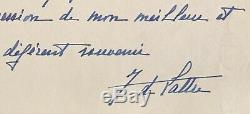 ression de mon meilleur et
déférent souvenir
de Lattre